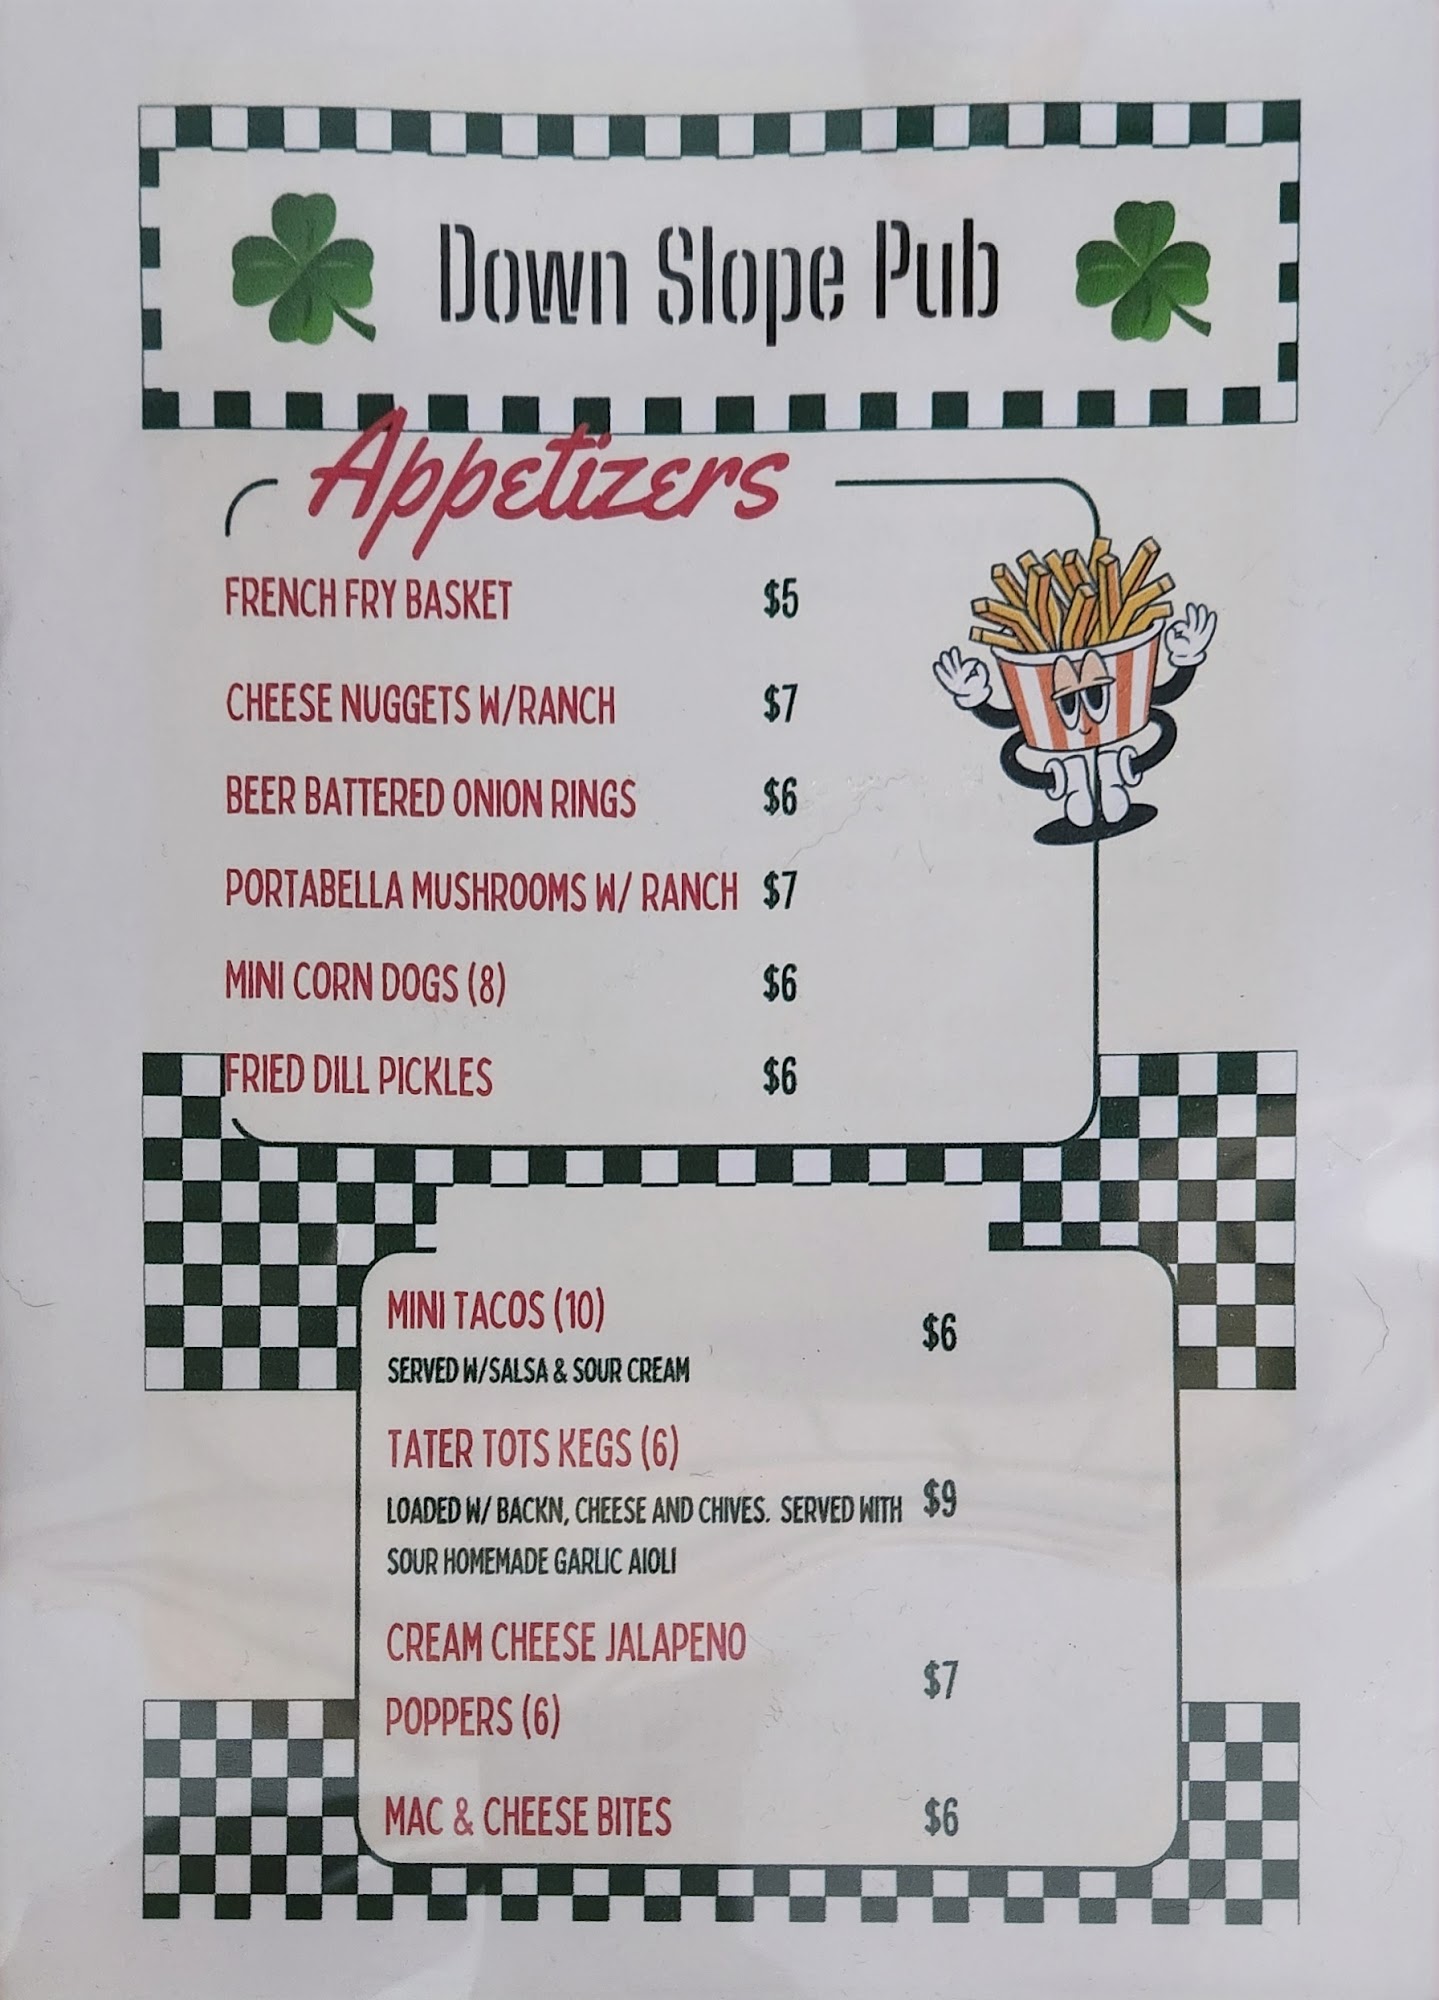 Down Slope Pub
Appetizers
FRENCH FRY BASKET $5
CHEESE NUGGETS W/RANCH $7
BEER BATTERED ONION RINGS $6
PORTABELLA MUSHROOMS W/ RANCH $7
MINI CORN DOGS (8) $6
FRIED DILL PICKLES $6
MINI TACOS (10) $6
SERVED W/SALSA & SOUR CREAM
TATER TOTS KEGS (6)
LOADED W/ BACKN, CHEESE AND CHIVES. SERVED WITH $9
SOUR HOMEMADE GARLIC AIOLI
CREAM CHEESE JALAPENO
POPPERS (6) $7
MAC & CHEESE BITES $6